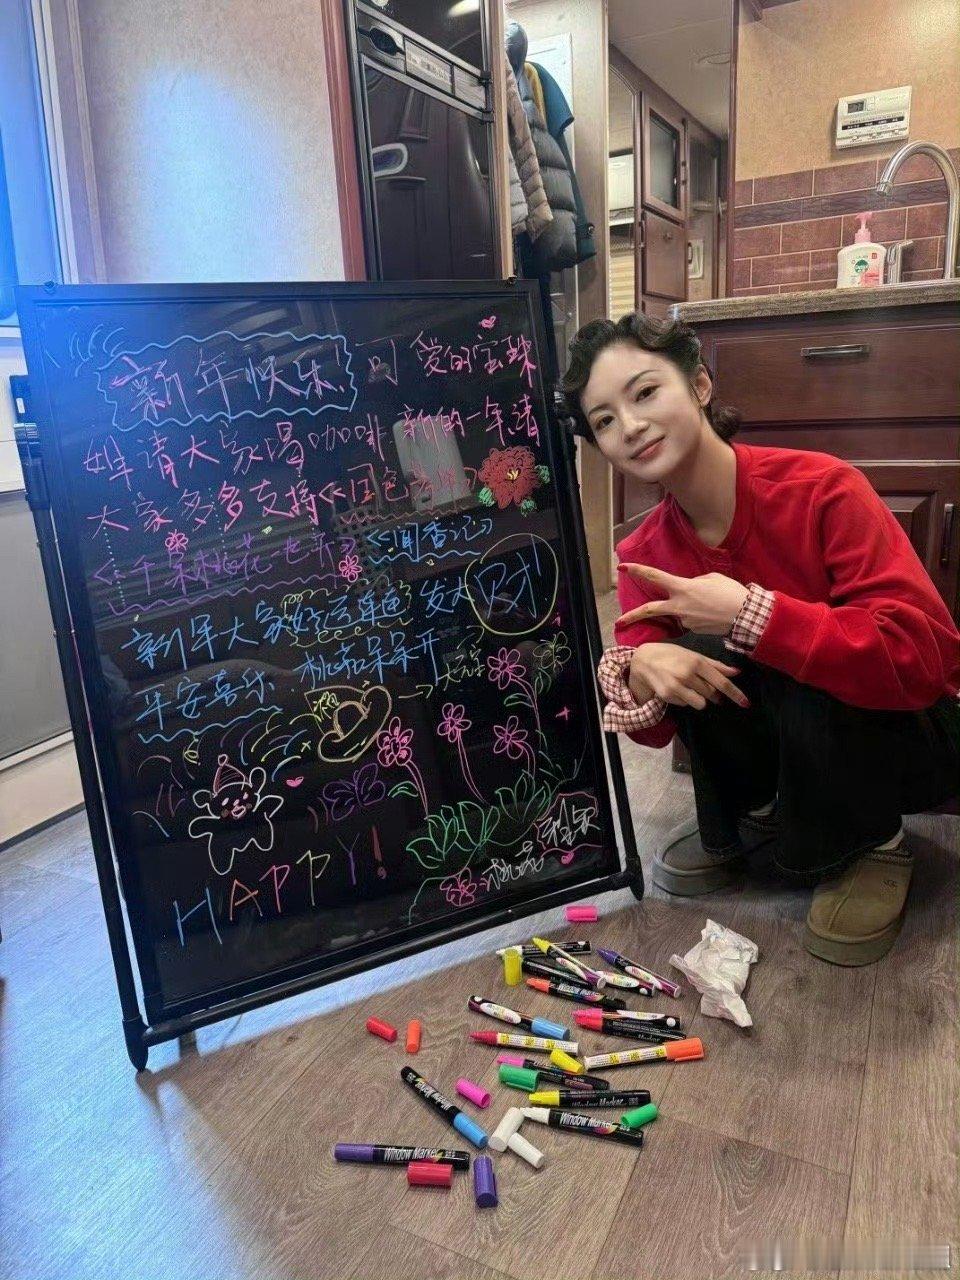 新年快乐! 可爱的宝珠
姐请大家喝咖啡.新的一年请
大家多多支持《国色芳华》
《千朵桃花一世开》《闻香记》
新年大家好运连连 发大财!
平安喜乐.桃花朵朵开
HAPPY!
桃花
Window Marker
Window Marker
Window Marker
Window Marker